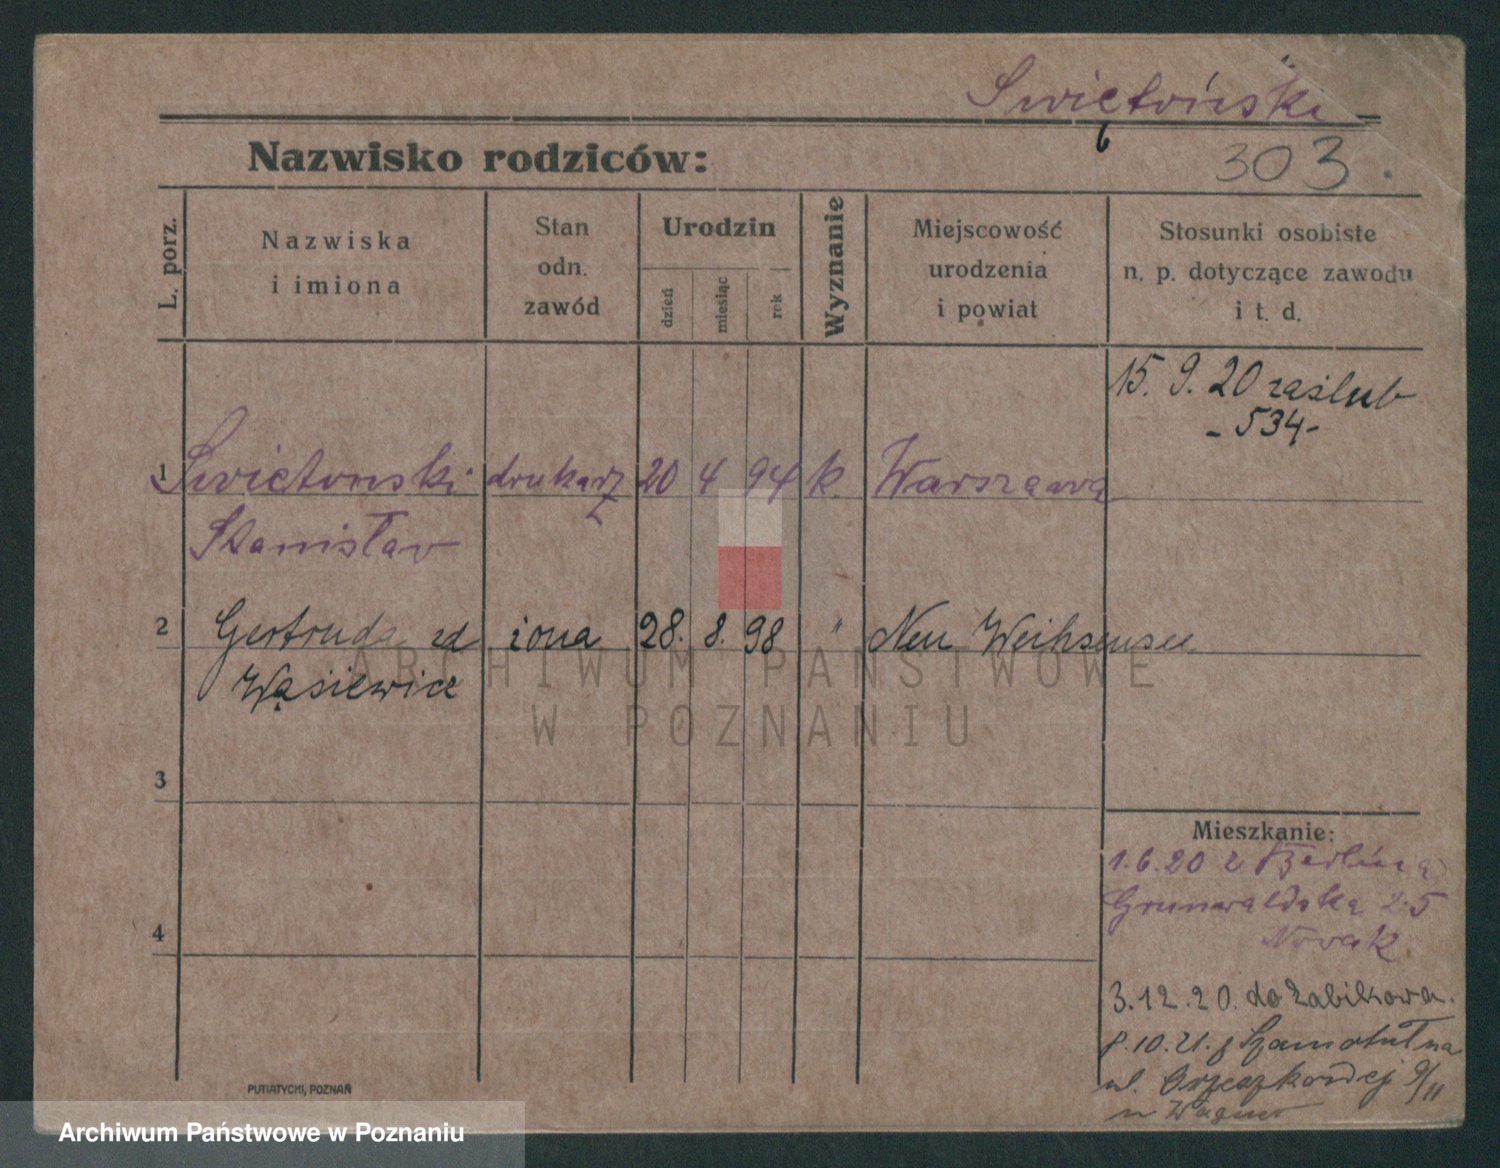 Świętoński
303.
Nazwisko rodziców:
L. porz.
Nazwiska
i imiona
Stan
odn.
zawód
Urodzin
dzień
miesiąc
rok
Wyznanie
Miejscowość
urodzenia
i powiat
Stosunki osobiste
n. p. dotyczące zawodu
i t. d.
15. 9. 20 zaślub
- 534 -
1 Swietonski drukarz 20 4 94 k. Warszawa
Stanisław
2 Gertruda zd żona 28. 8. 98 " Neu Weihsensee
Wąsiewicz
3
4
Mieszkanie:
1.6.20 z Berlina
Grunwaldska 25
Novak.
3.12.20. do Żabikowa.
8.10.21. z Szamotuł na
ul. Orzeszkowej 9/11
u Wagner
PUTIATYCKI, POZNAŃ
ARCHIWUM PAŃSTWOWE
W POZNANIU
Archiwum Państwowe w Poznaniu